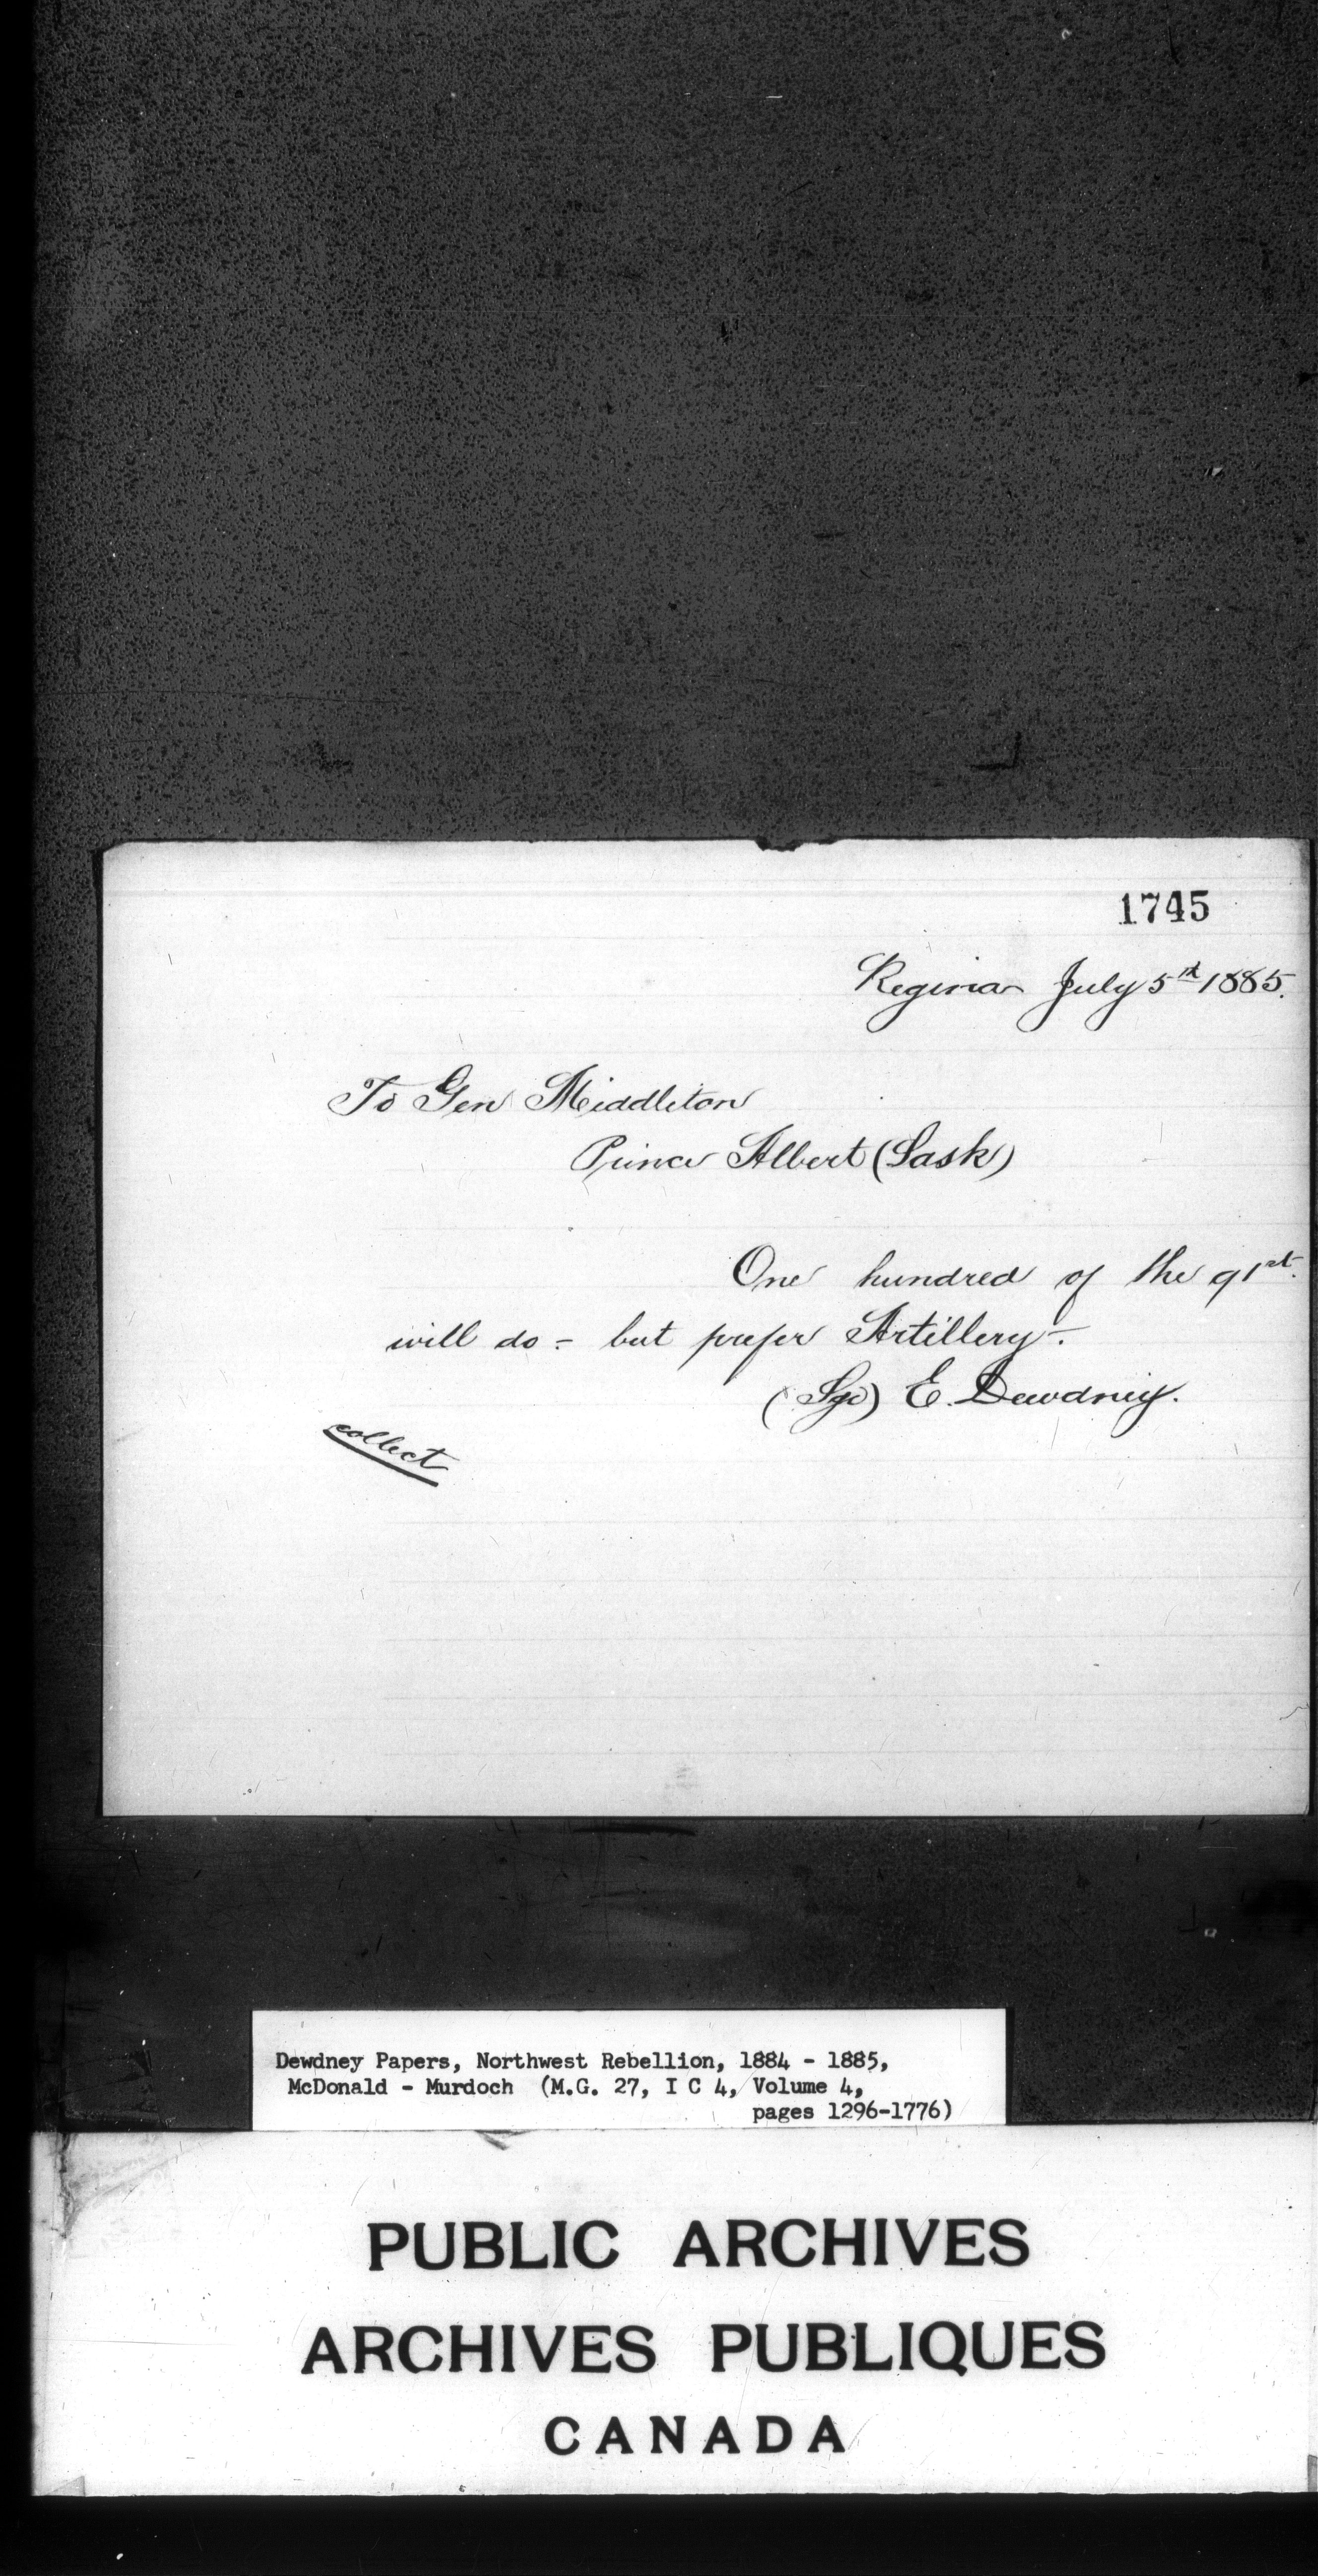 1745
Regina July 5th 1885.
To Gen Middleton
Prince Albert (Sask)
One hundred of the 91st.
will do - but prefer Artillery -.
(Sgd) E. Dewdney.
collect
Dewdney Papers, Northwest Rebellion, 1884 - 1885,
McDonald - Murdoch (M.G. 27, I C 4, Volume 4,
pages 1296-1776)
PUBLIC ARCHIVES
ARCHIVES PUBLIQUES
CANADA